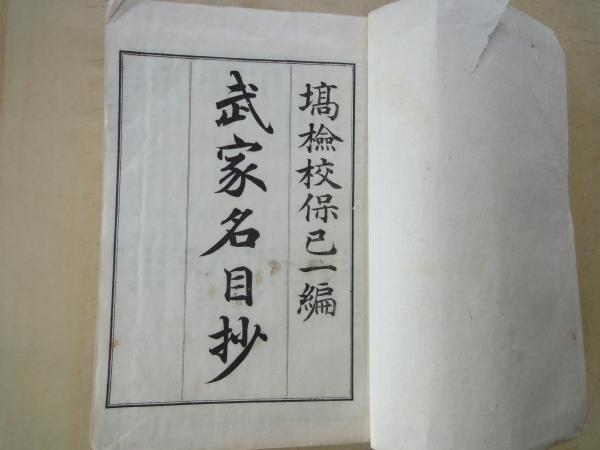 塙檢校保己一編
武家名目抄